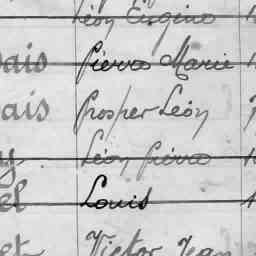 Léon Eugène
ais Pierre Marie
ais Prosper Léon
y Léon Pierre
el Louis
et Victor Jean